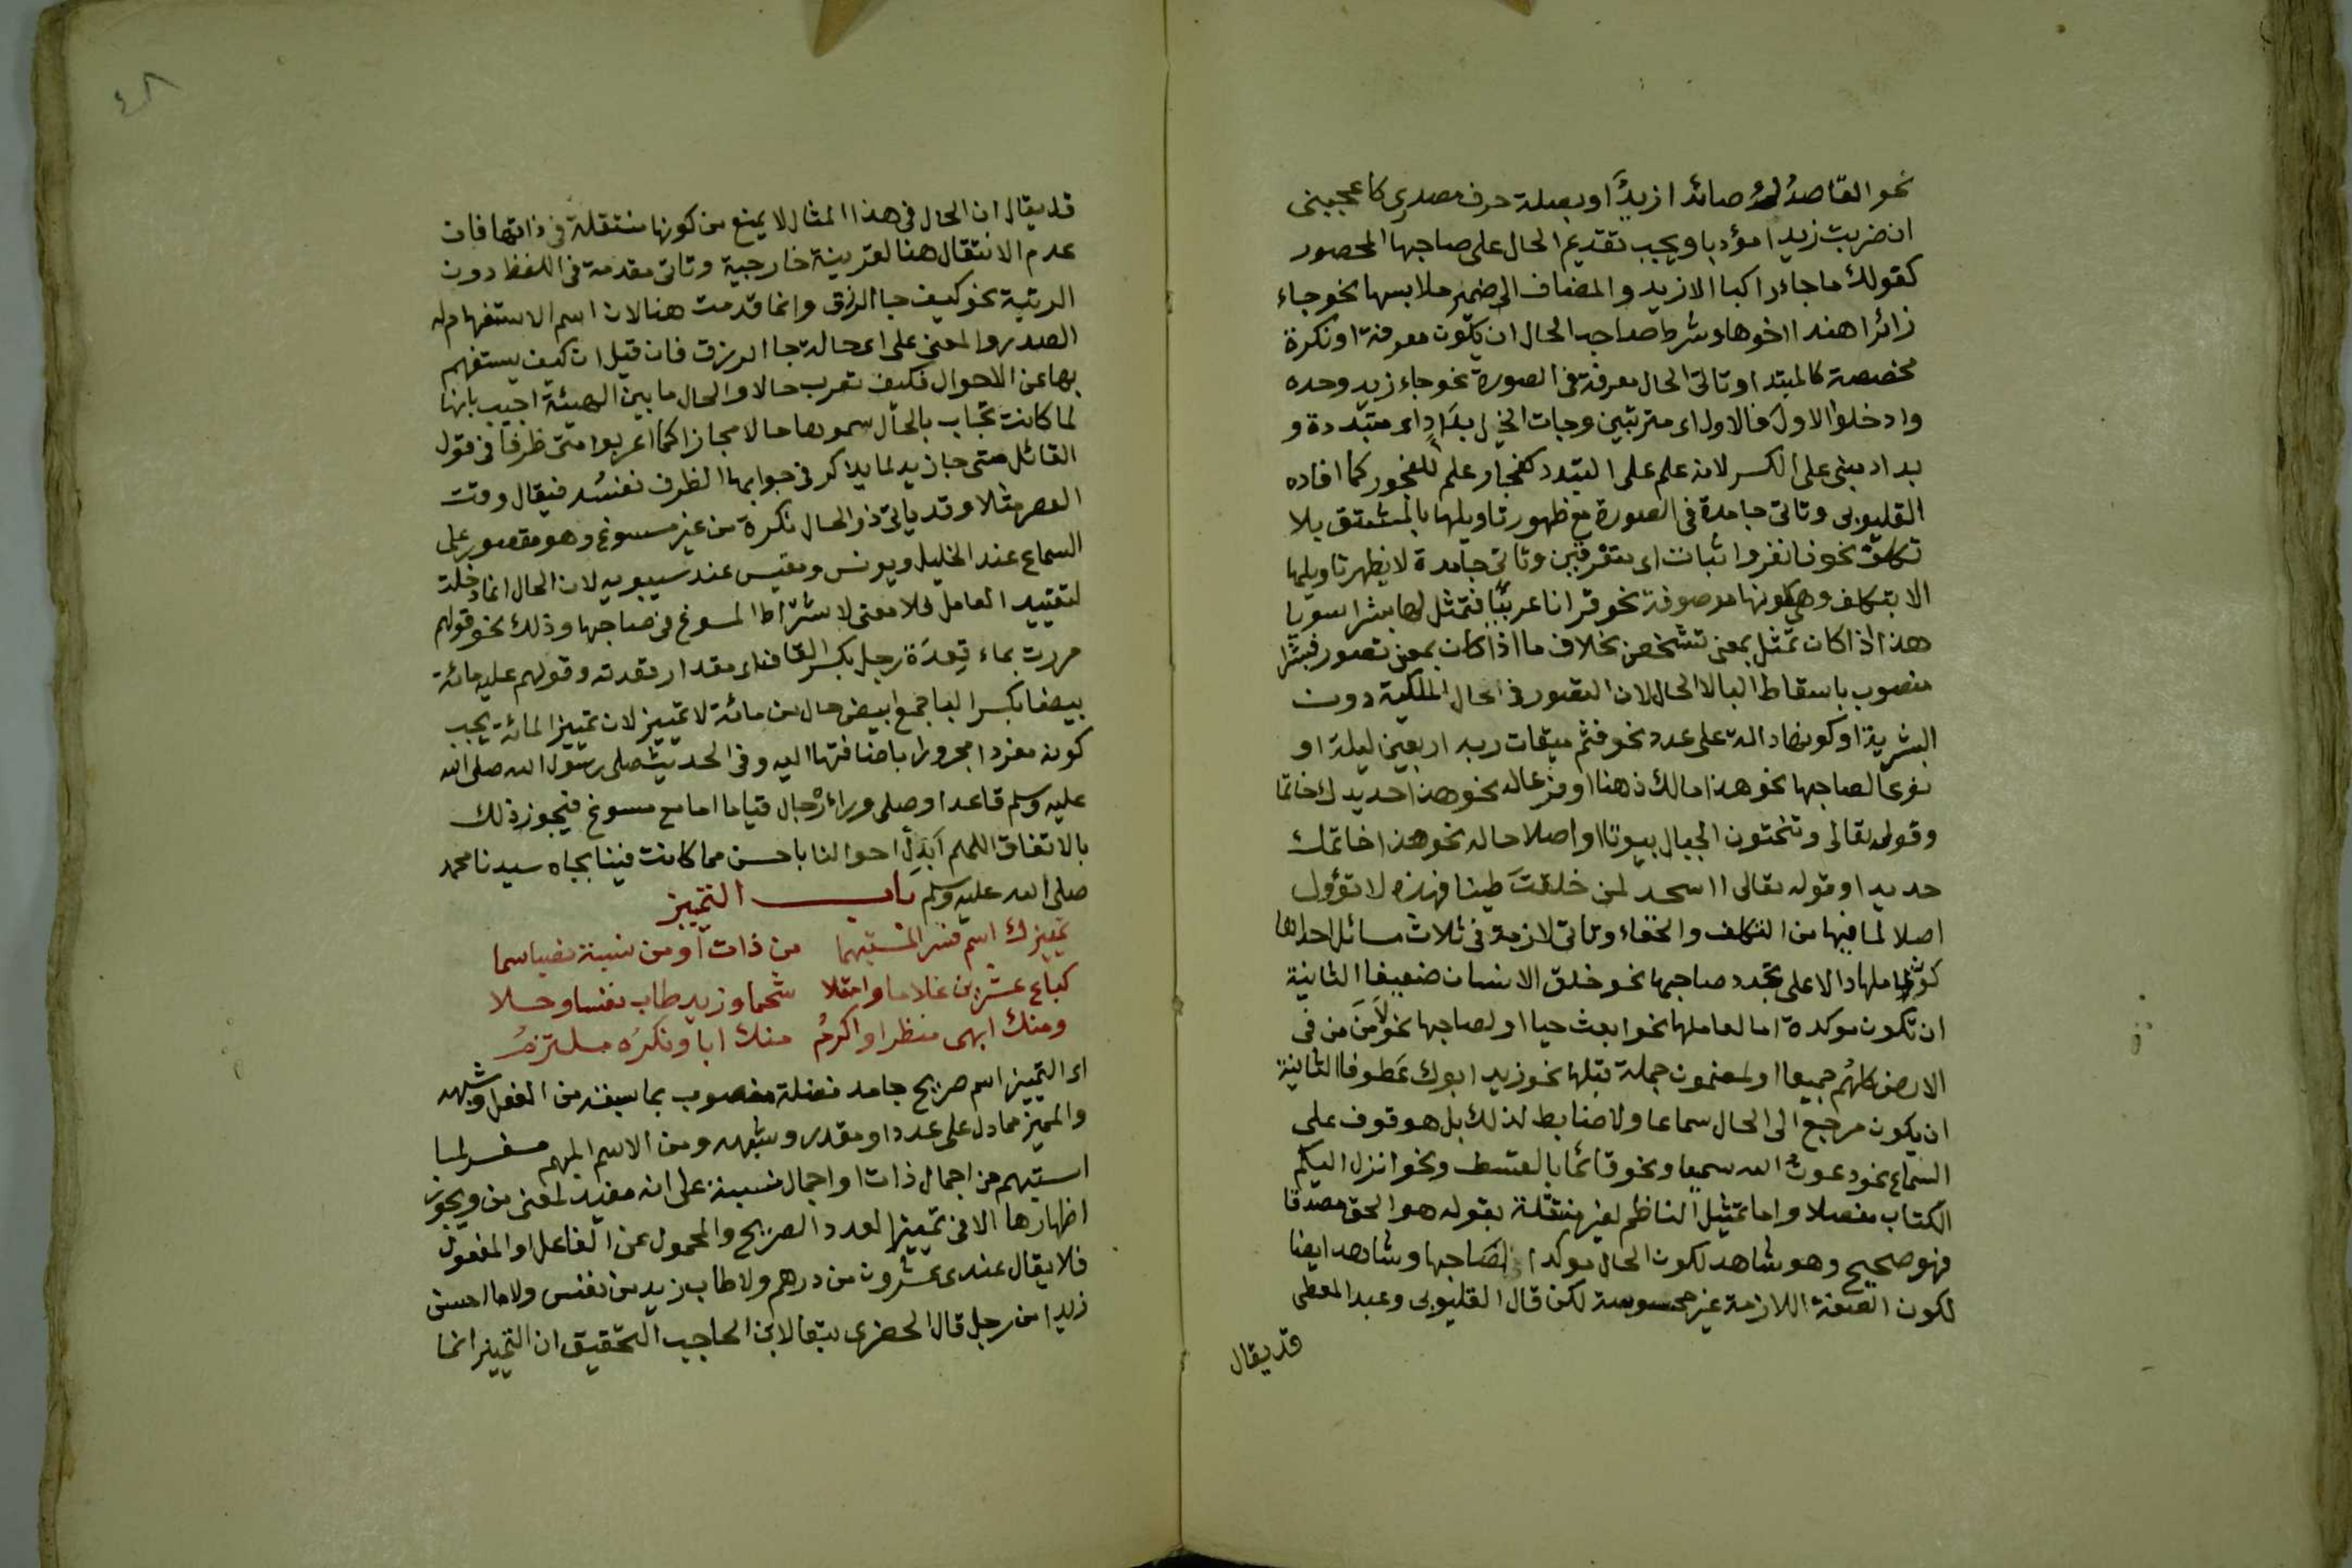 نحو القاصدُ صائدا زيدٌ او بصلة حرف مصدرى كاعجبنى
ان ضربت زيدا مؤدبا ويجب تقديم الحال على صاحبها المحصور
كقولك ما جاء راكبا الا زيد والمضاف الى ضمير ملابسها نحو جاء
زائرا هندا اخوها وشرط صاحب الحال ان يكون معرفة او نكرة
مخصصة كالمبتدا وتاتى الحال معرفة فى الصورة نحو جاء زيد وحده
وادخلوا الاول فالاول اى مترتبين وجات الخيل بدَادِ اى متبددة و
بداد مبنى على الكسر لانه علم على التبدد كفجار علم للفجور كما افاده
القليوبى وتاتى جامدة فى الصورة مع ظهور تاويلها بالمشتق بلا
تكلف نحو فانفروا ثبات اى متفرقين وتاتى جامدة لا يظهر تاويلها
الا بتكلف وهى كونها موصوفة نحو قرانا عربيًّا فتمثل لها بشرا سويا
هذا اذا كان تمثل بمعنى تشخص بخلاف ما اذا كان بمعنى تصور فبشرا
منصوب باسقاط البا لا الحال لان التصور فى الحال الملكية دون
البشرية او كونها دالة على عدد نحو فتم ميقات ربه اربعين ليلة او
نوعا لصاحبها نحو هذا مالك ذهبا او فرعا له نحو هذا حديدك خاتما
وقوله تعالى وتنحتون الجبال بيوتا او اصلا حاله نحو هذا خاتمك
حديدا وقوله تعالى ااسجد لمن خلقتَ طينا فهذه لا تؤول
اصلا لما فيها من التكلف والخفاء وتاتى لازمة فى ثلاث مسائل احداها
كون عاملها دالا على تجدد صاحبها نحو خلق الانسان ضعيفا الثانية
ان تكون موكدة اما لعاملها نحو ابعث حيا او لصاحبها نحو لَامَنَ من فى
الارض كلهُم جميعا او لمضمون جملة قبلها نحو زيد ابوك عَطوفا الثالثة
ان يكون مرجع الى الحال سماعا ولا ضابط لذلك بل هو قوف على
السماع نحو دعوتُ الله سميعا ونحو قائما بالقسط ونحو انزل اليكم
الكتاب مفصلا واما تمثيل الناظم لغير منتقلة بقوله هو الحق مصدقا
فهو صحيح وهو شاهد لكون الحال موكدا لصاحبها وشاهد ايضا
لكون الصفة اللازمة غير محسوسة لكن قال القليوبى وعبد المعطى
قد يقال
٤٨
قد يقال ان الحال فى هذا المثال لا يمنع من كونها منتقلة فى ذاتها فان
عدم الانتقال هنا لقرينة خارجية وتاتى مقدمة فى اللفظ دون
الرتبة نحو كيف جا الرزق وانما قدمت هنا لان اسم الاستفهام له
الصدر والمعنى على اى حالة جا الرزق فان قيل ان كيف يستفهم
بها عن الاحوال فكيف تعرب حالا والحال ما يبين الهيئة اجيب بانها
لما كانت تجاب بالحال سموها حالا مجازا كما اعربوا متى ظرفا فى قول
القائل متى جا زيد لما يذكر فى جوابها الظرف نفسُه فيقال وقت
العصر مثلا وقد ياتى ذو الحال نكرة من غير مسوغ وهو مقصور على
السماع عند الخليل ويونس ومقيس عند سيبويه لان الحال انما دخلت
لتقييد العامل فلا معنى لاشتراط المسوغ فى صاحبها وذلك نحو قولهم
مررت بماء قِعدَة رجل بكسر القاف اى مقدار قعدته وقولهم عليه مائة
بيضا بكسر البا جمع ابيض حال من مائة لا تمييز لان تمييز المائة يجب
كونه مفردا مجرورا باضافتها اليه وفى الحديث صلى رسول الله صلى الله
عليه وسلم قاعدا وصلى وراءه رجال قياما اما مع مسوغ فيجوز ذلك
بالاتفاق اللهم ابدل احوالنا باحسن مما كانت فينا بجاه سيدنا محمد
صلى الله عليه وسلم باب التمييز
تمييزك اسم فسر المستبهما من ذات او من نسبة نصبا سما
كباع عشرين غلاما وامتلا شحما وزيد طاب نفسا وحلا
ومنك ابهى منظرا واكرمُ منك ابا ونكرَه ملتزمُ
اى التمييز اسم صريح جامد فضلة منصوب بما سبقه من الفعل وشبهه
والمميز مما دل على عدد او مقدر وشبهه ومن الاسم المبهم مفسر لما
استبهم من اجمال ذات او اجمال نسبة على انه مفيد لمعنى من ويجوز
اظهارها الا فى تمييز العدد الصريح والمحمول عن الفاعل او المفعول
فلا يقال عندى عشرون من درهم ولا طاب زيد من نفس ولا ما احسن
زيدا من رجل قال الحضرى تبعا لابن الحاجب التحقيق ان التمييز انما